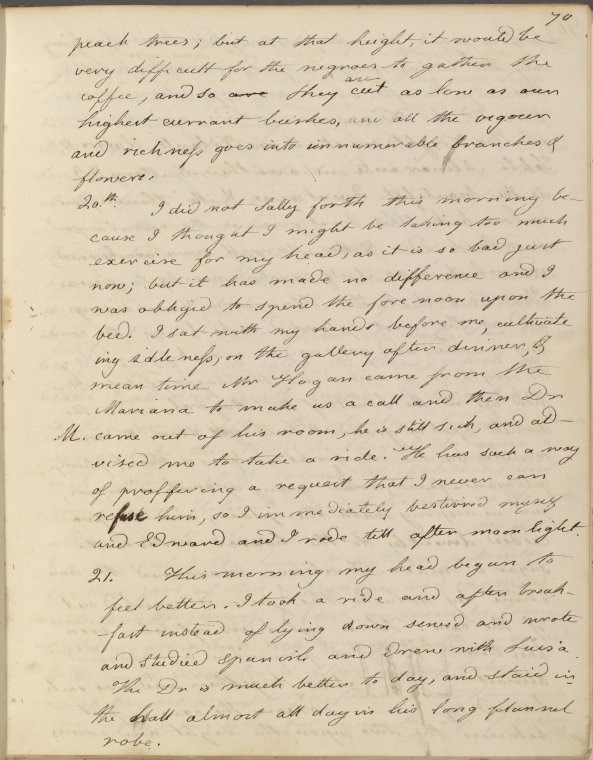 70
peach trees; but at that height, it would be
very difficult for the negroes to gather the
coffee, and so are they are cut as low as our
highest currant bushes, and all the vigour
and richness goes into innumerable branches &
flowers.
20.th I did not sally forth this morning be-
cause I thought I might be taking too much
exercise for my head, as it is so bad just
now; but it has made no difference and I
was obliged to spend the fore noon upon the
bed. I sat with my hands before me, cultivate
ing idleness, on the gallery after dinner, &
mean time Mr Hogan came from the
Mariana to make us a call and then Dr
M. came out of his room, he is still sick, and ad-
vised me to take a ride. He has such a way
of proffering a request that I never can
refuse him, so I immediately bestirred myself
and Edward and I rode till after moon light.
21. This morning my head began to
feel better. I took a ride and after break-
-fast instead of lying down sewed and wrote
and studied Spanish and drew with Luisa.
The Dr is much better to day, and staid in
the hall almost all day in his long flannel
robe.